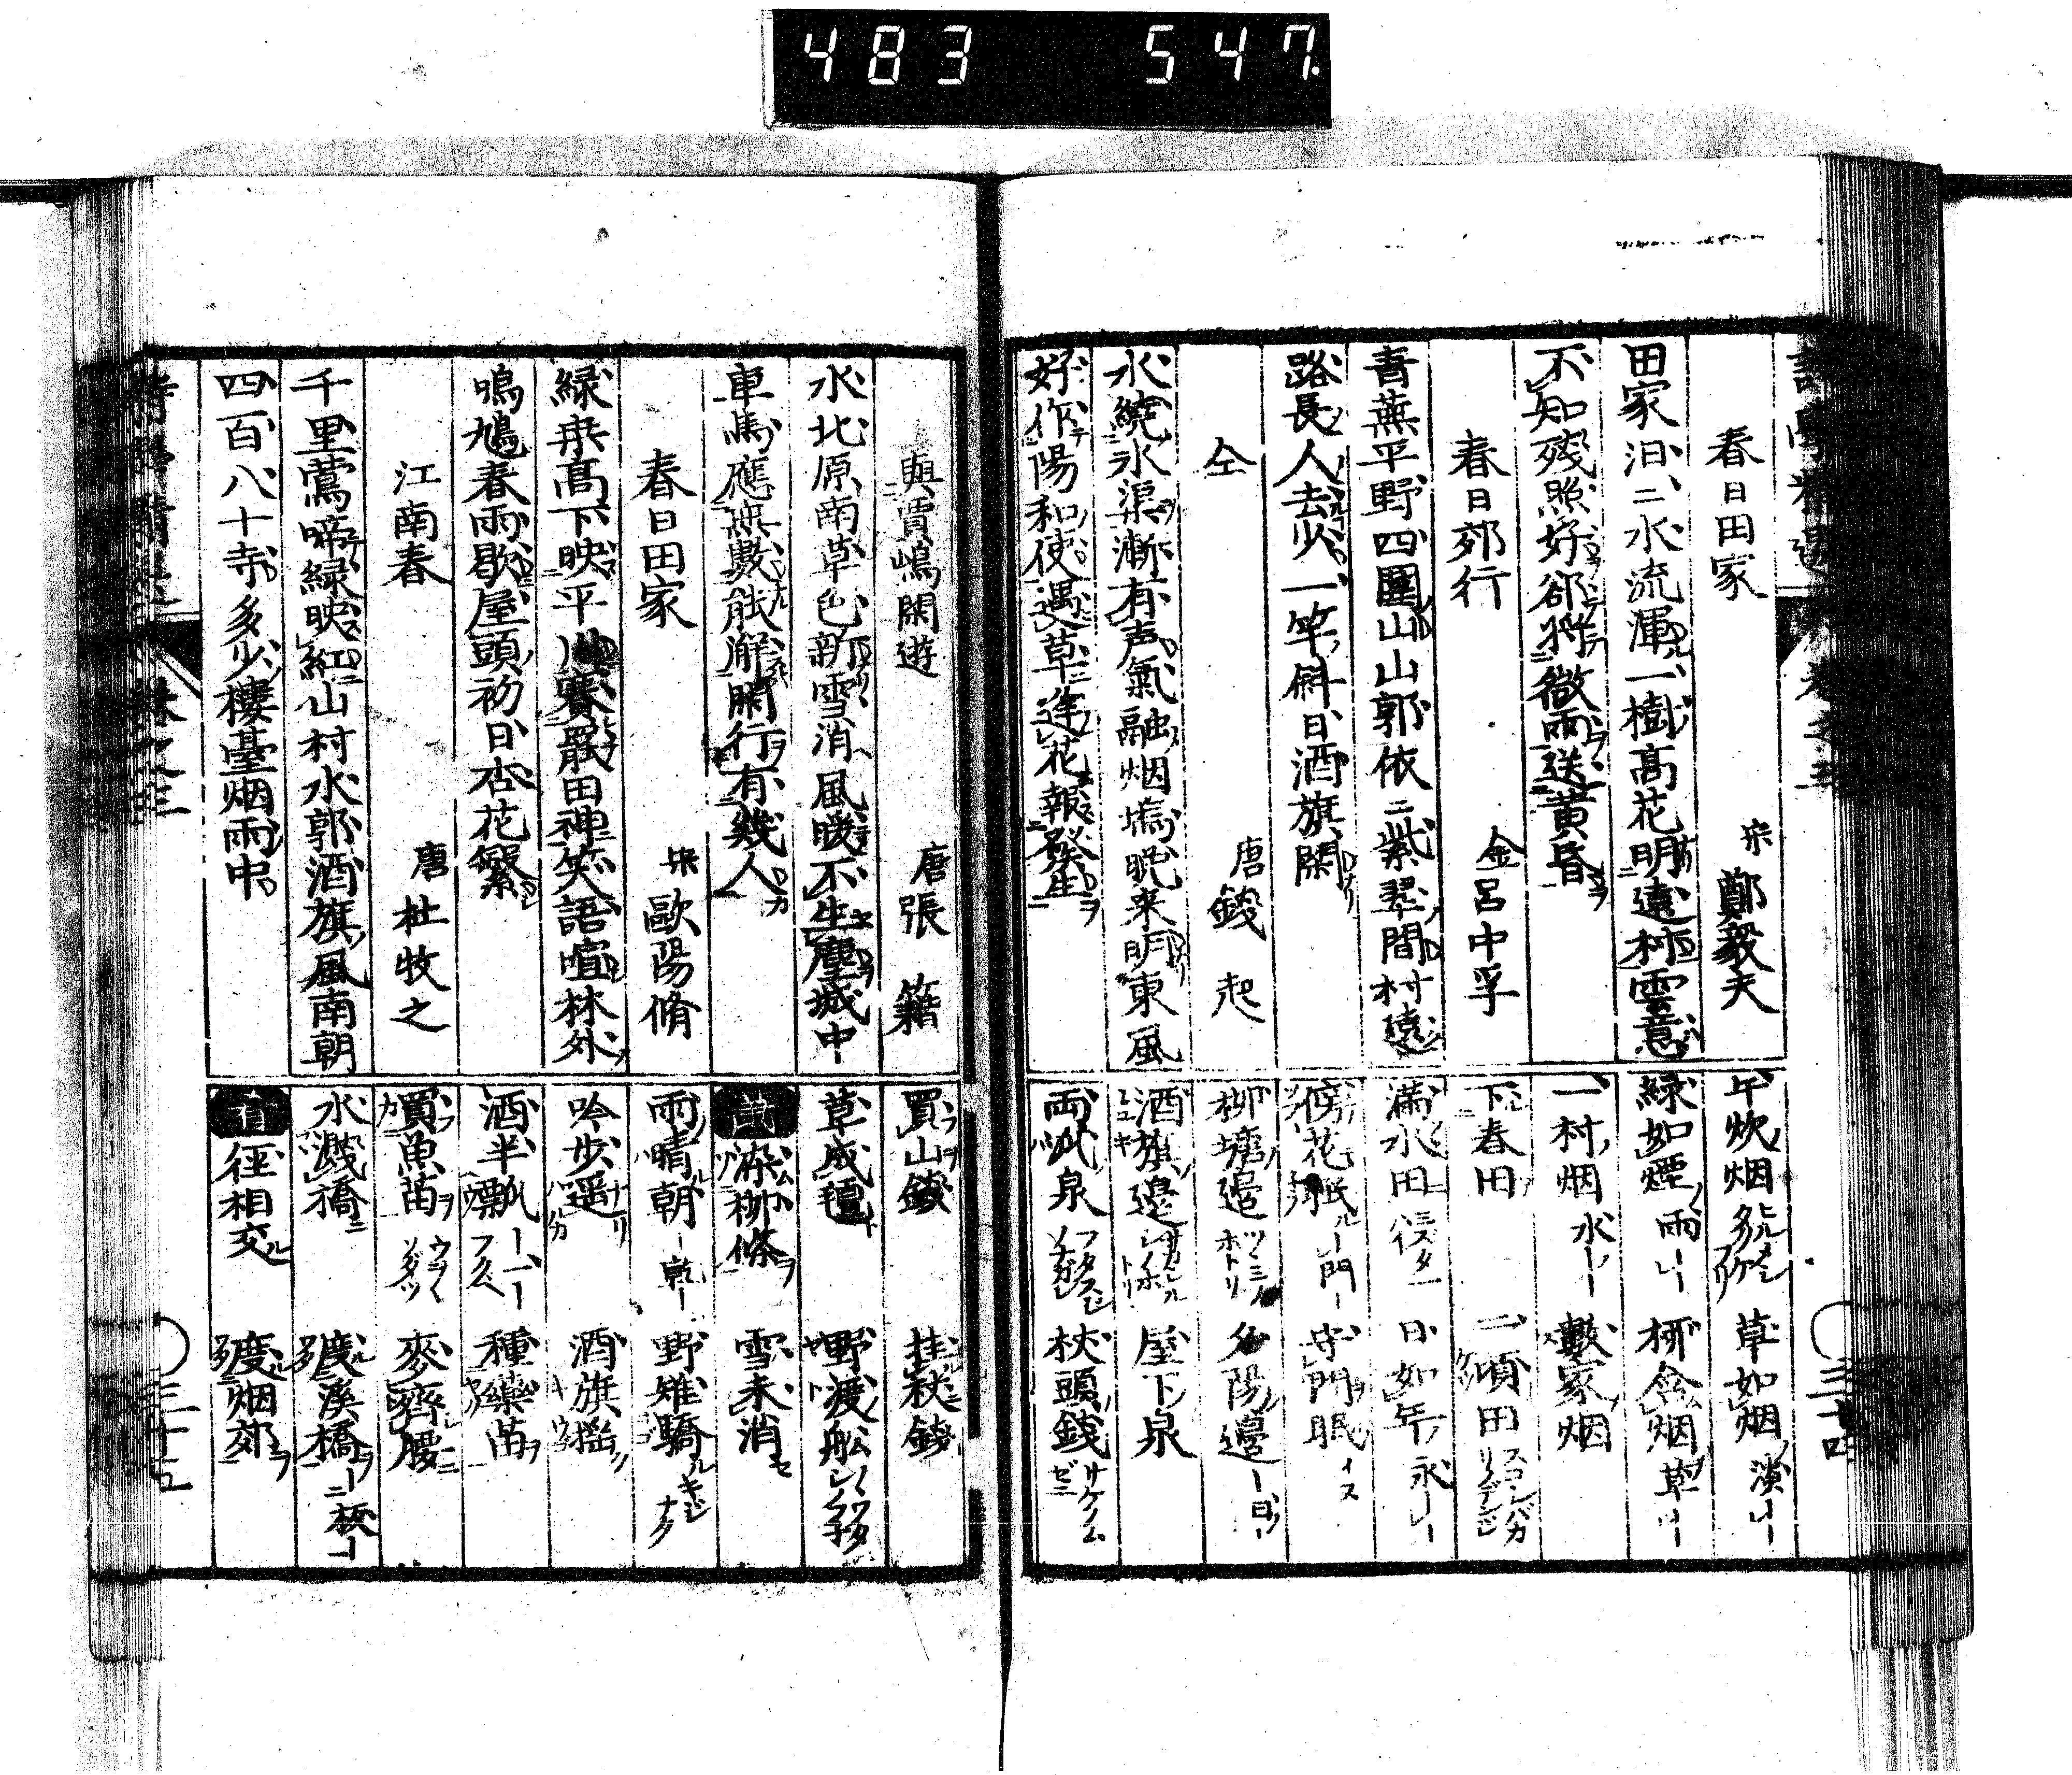 483 547.
春日田家 宋 鄭毅夫
田家汩二水流渾一樹高花明遠村雲意
不知殘照好却將微雨送黃昏
春日郊行 金 呂中孚
青蕪平野四圍山山郭依二紫翠間村遠
路長人去少一竿斜日酒旗閑
仝 唐 錢起
水繞氷渠漸有声氣融烟塢晩来明東風
好作陽和使逢草逢花報發生
午炊烟 草如烟
緑如煙 柳含烟
一村烟 數家烟
下春田 二頃田
滿水田 日如年
傍花眠 守門眠
柳塘邊 夕陽邊
酒旗邊 屋下泉
両派泉 杖頭錢
與賈嶋閑遊 唐 張籍
水北原南草色新雪消風暖不生塵城中
車馬應無數能解閑行有幾人
春日田家 宋 歐陽脩
緑桒高下映平川賽罷田神笑語喧林外
鳴鳩春雨歇屋頭初日杏花繁
江南春 唐 杜牧之
千里鶯啼緑映紅山村水郭酒旗風南朝
四百八十寺多少樓臺烟雨中
買山錢 挂杖錢
草成氊 野渡舩
染柳條 雪未消
雨晴朝 野雉驕
吟歩遥 酒旗
酒半瓢 種藥苗
買魚苗 麥齊腰
水濺橋 度溪橋
徑相交 度烟郊